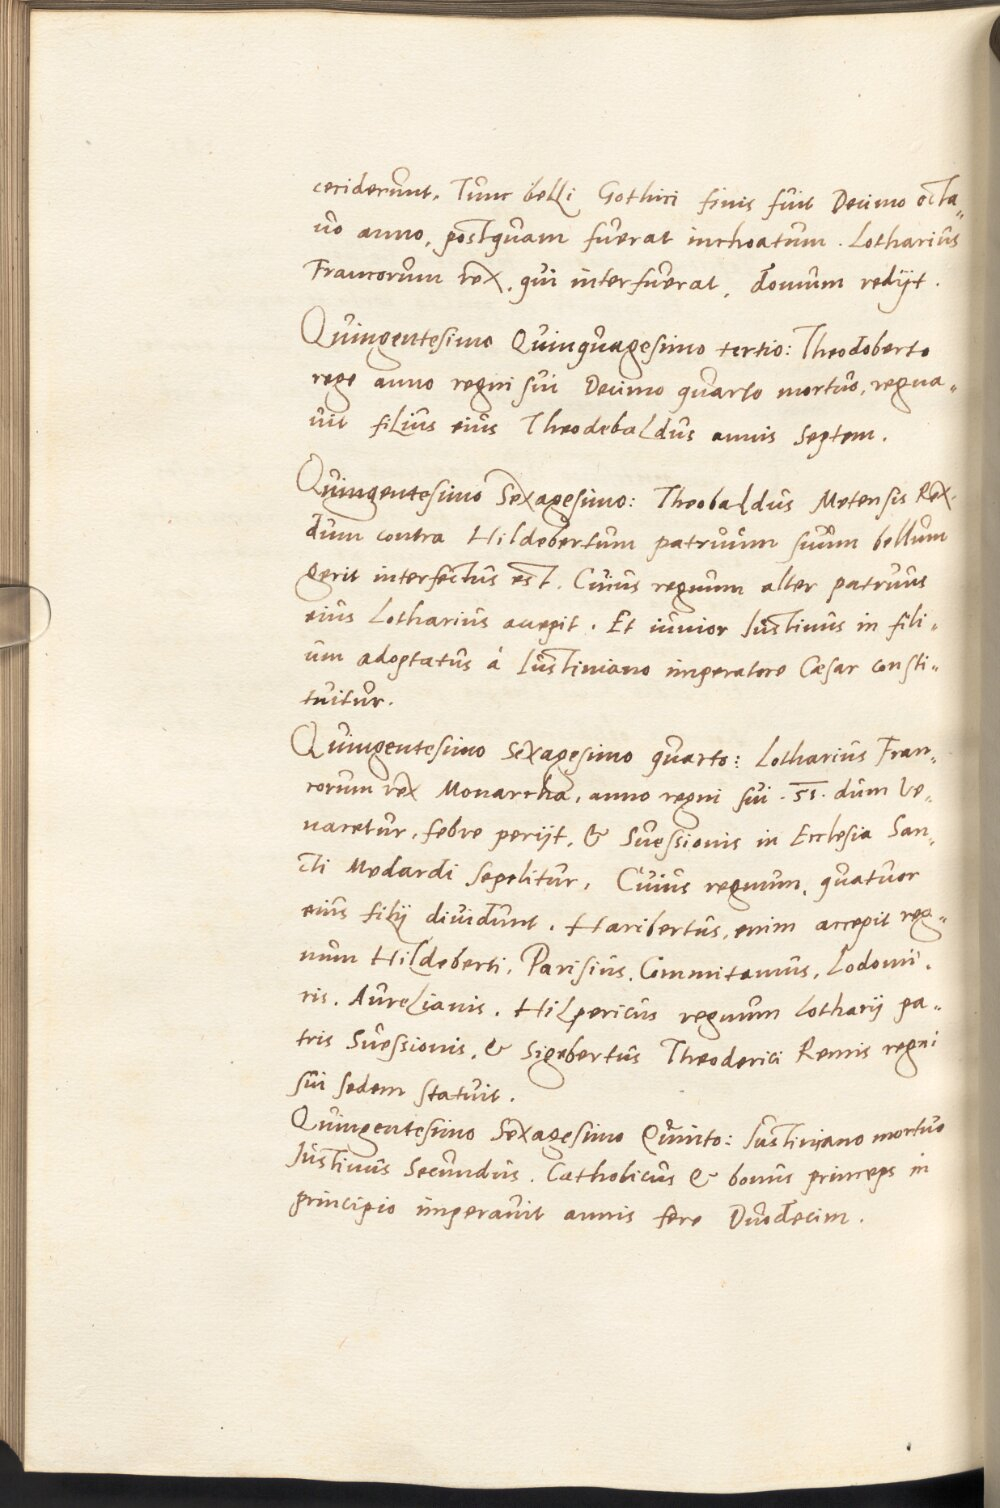 ceciderunt. Tunc belli Gothici finis fuit Decimo octa„
uo anno, postquam fuerat inchoatum. Lotharius
Francorum rex, qui interfuerat, domum redijt.
Quingentesimo Quinquagesimo tertio: Theodoberto
rege anno regni sui Decimo quarto mortuo, regna„
uit filius eius Theodebaldus annis Septem.
Quingentesimo Sexagesimo: Theobaldus Metensis Rex.
dum contra Hildebertum patruum suum bellum
gerit interfectus est. Cuius regnum alter patruus
eius Lotharius accepit. Et iunior Iustinus in fili„
um adoptatus á Iustiniano imperatore Cæsar consti„
tuitur.
Quingentesimo Sexagesimo quarto: Lotharius Fran„
corum rex Monarcha, anno regni sui .51. dum Ve„
naretur, febre perijt, & Suessionis in Ecclesia San„
cti Medardi sepelitur, Cuius regnum, quatuor
eius filij diuidunt. Haribertus, enim accepit reg„
num Hildeberti, Parisius, Comnitamus, Lodomi„
ris. Aurelianis. Hilpericus regnum Lotharij pa„
tris Suessionis, & Sigebertus Theoderici Remis regni
sui sedem statuit.
Quingentesimo Sexagesimo Quinto: Iustiniano mortuo
Iustinus Secundus. Catholicus & bonus princeps in
principio imperauit annis fere Duodecim.